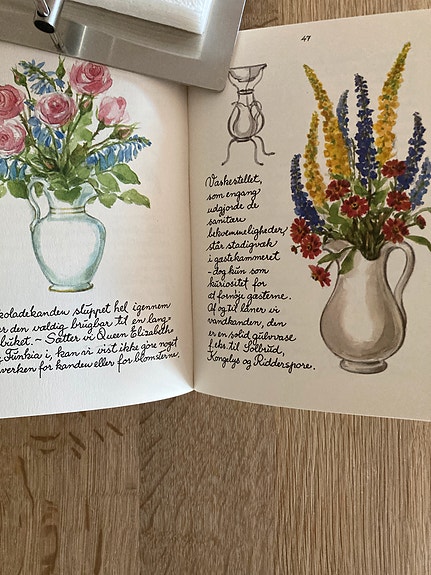 koladekanden sluppet hel igennem
er den vældig brugbar til en lang-
buket. ~ Sætter vi Queen Elizabeth
Funkia i, kan vi vist ikke gøre noget
hverken for kanden eller for blomsterne.
47
Vaskestellet,
som engang
udgjorde de
sanitære
bekvemmeligheder,
står stadigvæk
i gæstekammeret
- dog kun som
kuriositet for
at fornøje gæsterne.
Af og til låner vi
vandkanden, den
er en solid gulvvase
f.eks. til Solbrud,
Kongelys og Ridderspore.